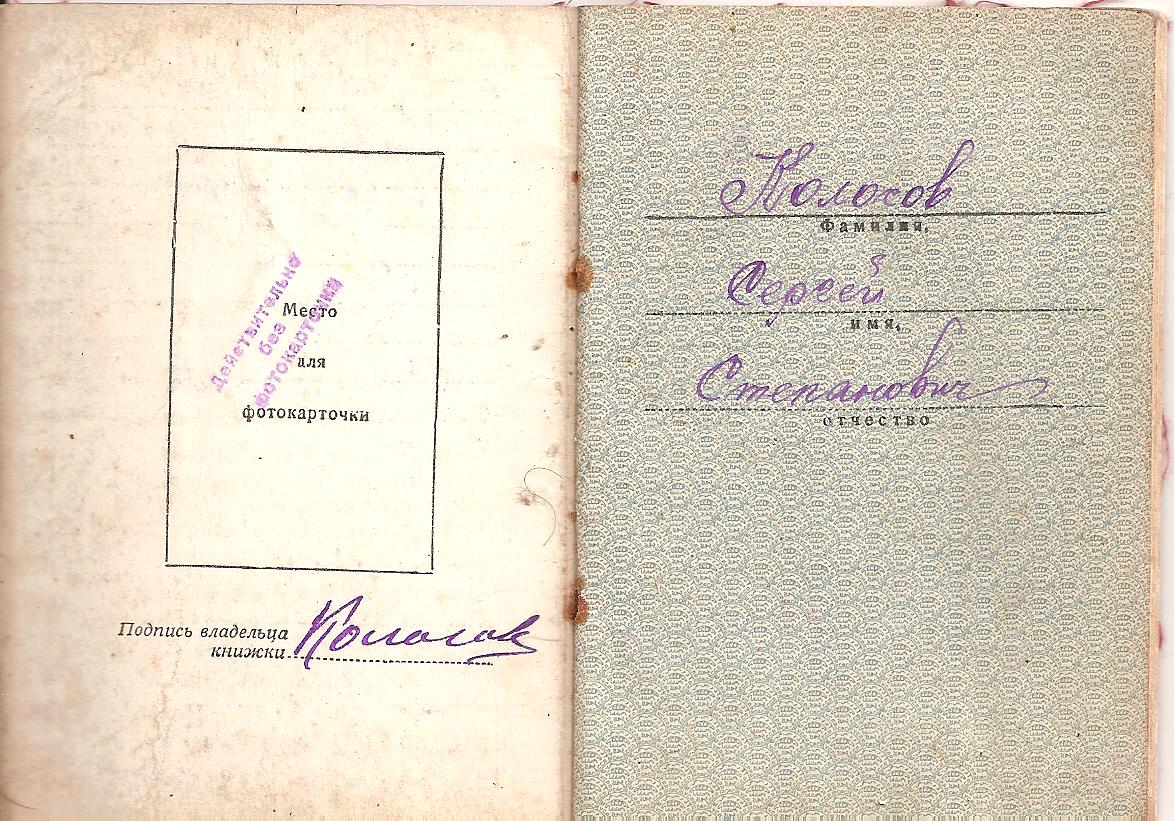 Действительно
без
фотокарточки
Место
для
фотокарточки
Подпись владельца
книжки Колосов
Колосов
Фамилия,
Сергей
имя,
Степанович
отчество